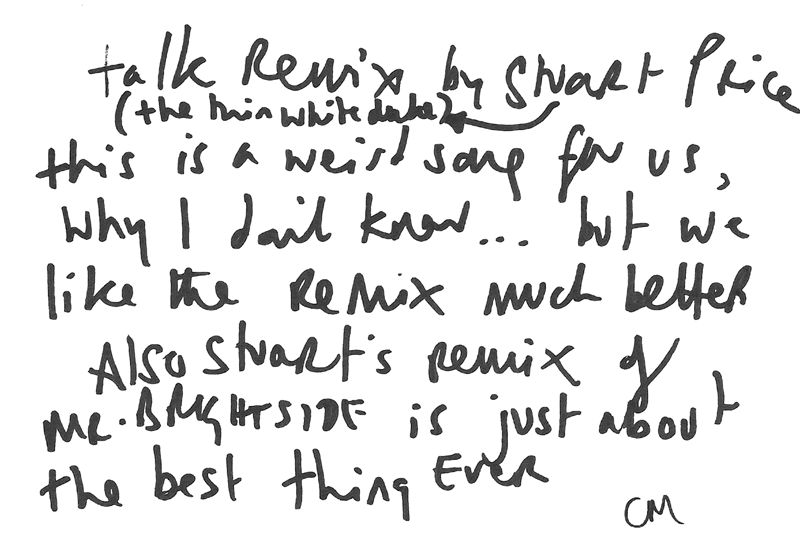 talk Remix by Stuart Price
(the thin white duke)
this is a weird song for us,
why I don't know... but we
like the Remix much better
Also Stuart's remix of
MR. BRIGHTSIDE is just about
the best thing Ever
CM